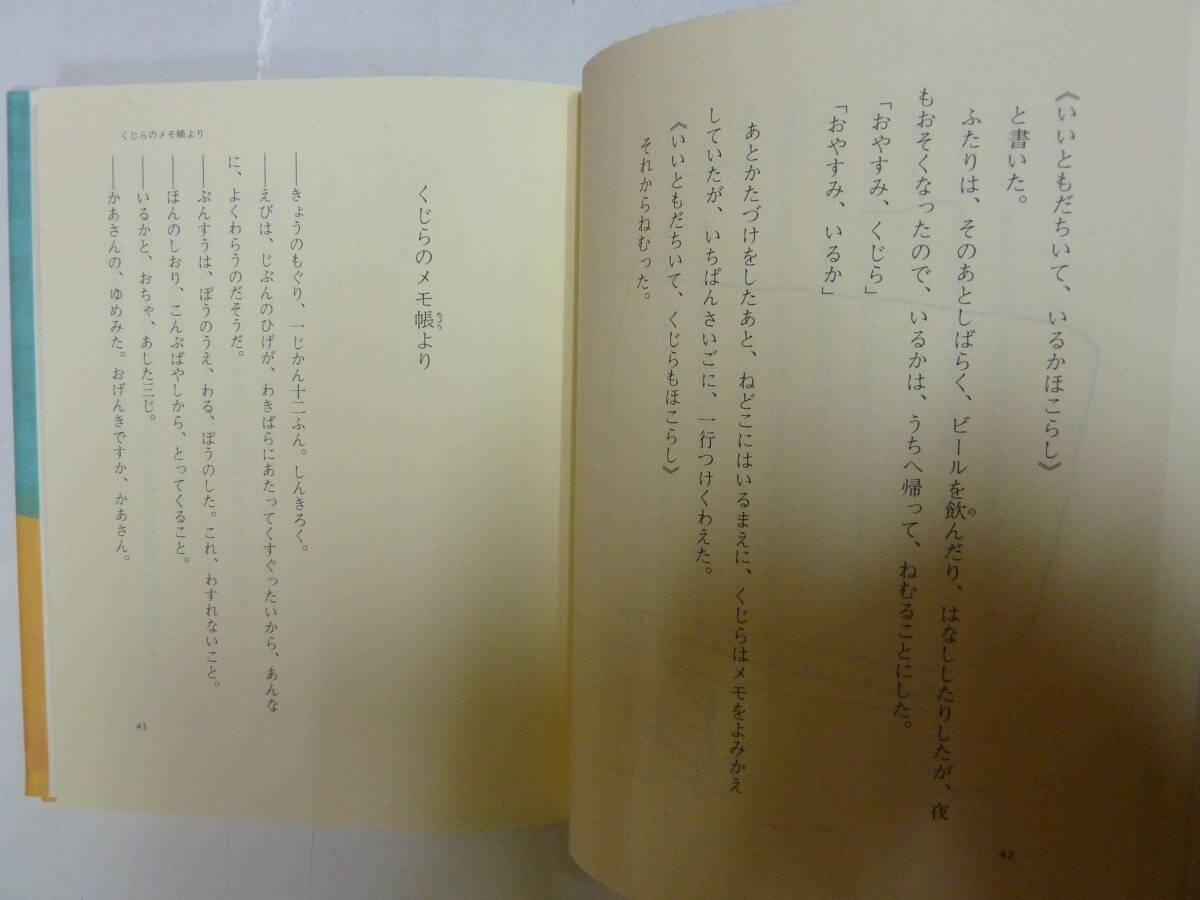 《いいともだちいて、いるかほこらし》
と書いた。
ふたりは、そのあとしばらく、ビールを飲んだり、はなししたりしたが、夜
もおそくなったので、いるかは、うちへ帰って、ねむることにした。
「おやすみ、くじら」
「おやすみ、いるか」
あとかたづけをしたあと、ねどこにはいるまえに、くじらはメモをよみかえ
していたが、いちばんさいごに、一行つけくわえた。
《いいともだちいて、くじらもほこらし》
それからねむった。
42
くじらのメモ帳より
くじらのメモ帳より
――きょうのもぐり、一じかん十二ふん。しんきろく。
――えびは、じぶんのひげが、わきばらにあたってくすぐったいから、あんな
に、よくわらうのだそうだ。
――ぶんすうは、ぼうのうえ、わる、ぼうのした。これ、わすれないこと。
――ほんのしおり、こんぶばやしから、とってくること。
――いるかと、おちゃ、あした三じ。
――かあさんの、ゆめみた。おげんきですか、かあさん。
43